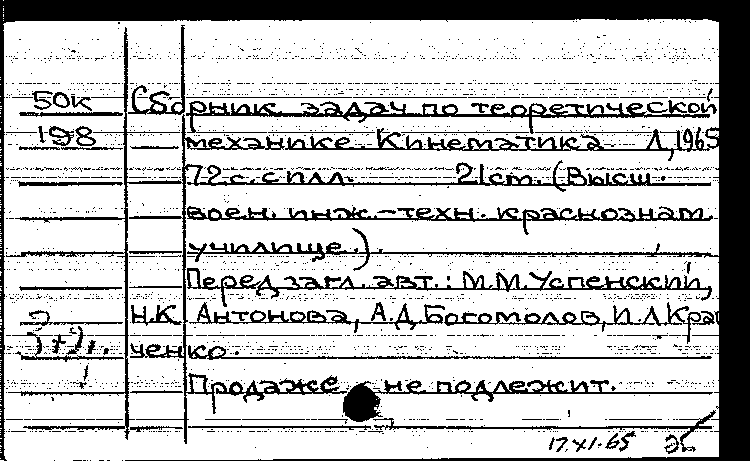 50к Сборник задач по теоретической
198 механике. Кинематика Л, 1965
72 с. с илл. 21 cm. (Высш.
воен. инж.-техн. краснознам.
училище.).
Перед загл. авт.: М.М. Успенский,
Н.К. Антонова, А.Д. Богомолов, И.Л. Крав
ченко.
Продаже не подлежит.
17.XI.65